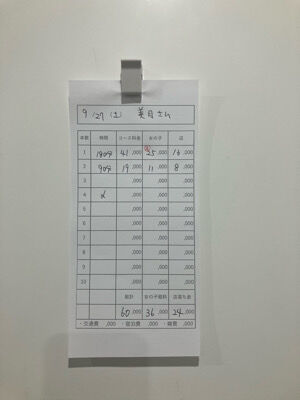 9/27 (土) 美月さん
本数 時間 コース料金 女の子 店
1 180分 41,000 25,000 16,000
2 90分 19,000 11,000 8,000
3 ,000 ,000 ,000
4 ,000 ,000 ,000
5 ,000 ,000 ,000
6 ,000 ,000 ,000
7 ,000 ,000 ,000
8 ,000 ,000 ,000
9 ,000 ,000 ,000
10 ,000 ,000 ,000
総計 女の子給料 店落ち金
60,000 36,000 24,000
・交通費 ,000 ・宿泊費 ,000 ・雑費 ,000